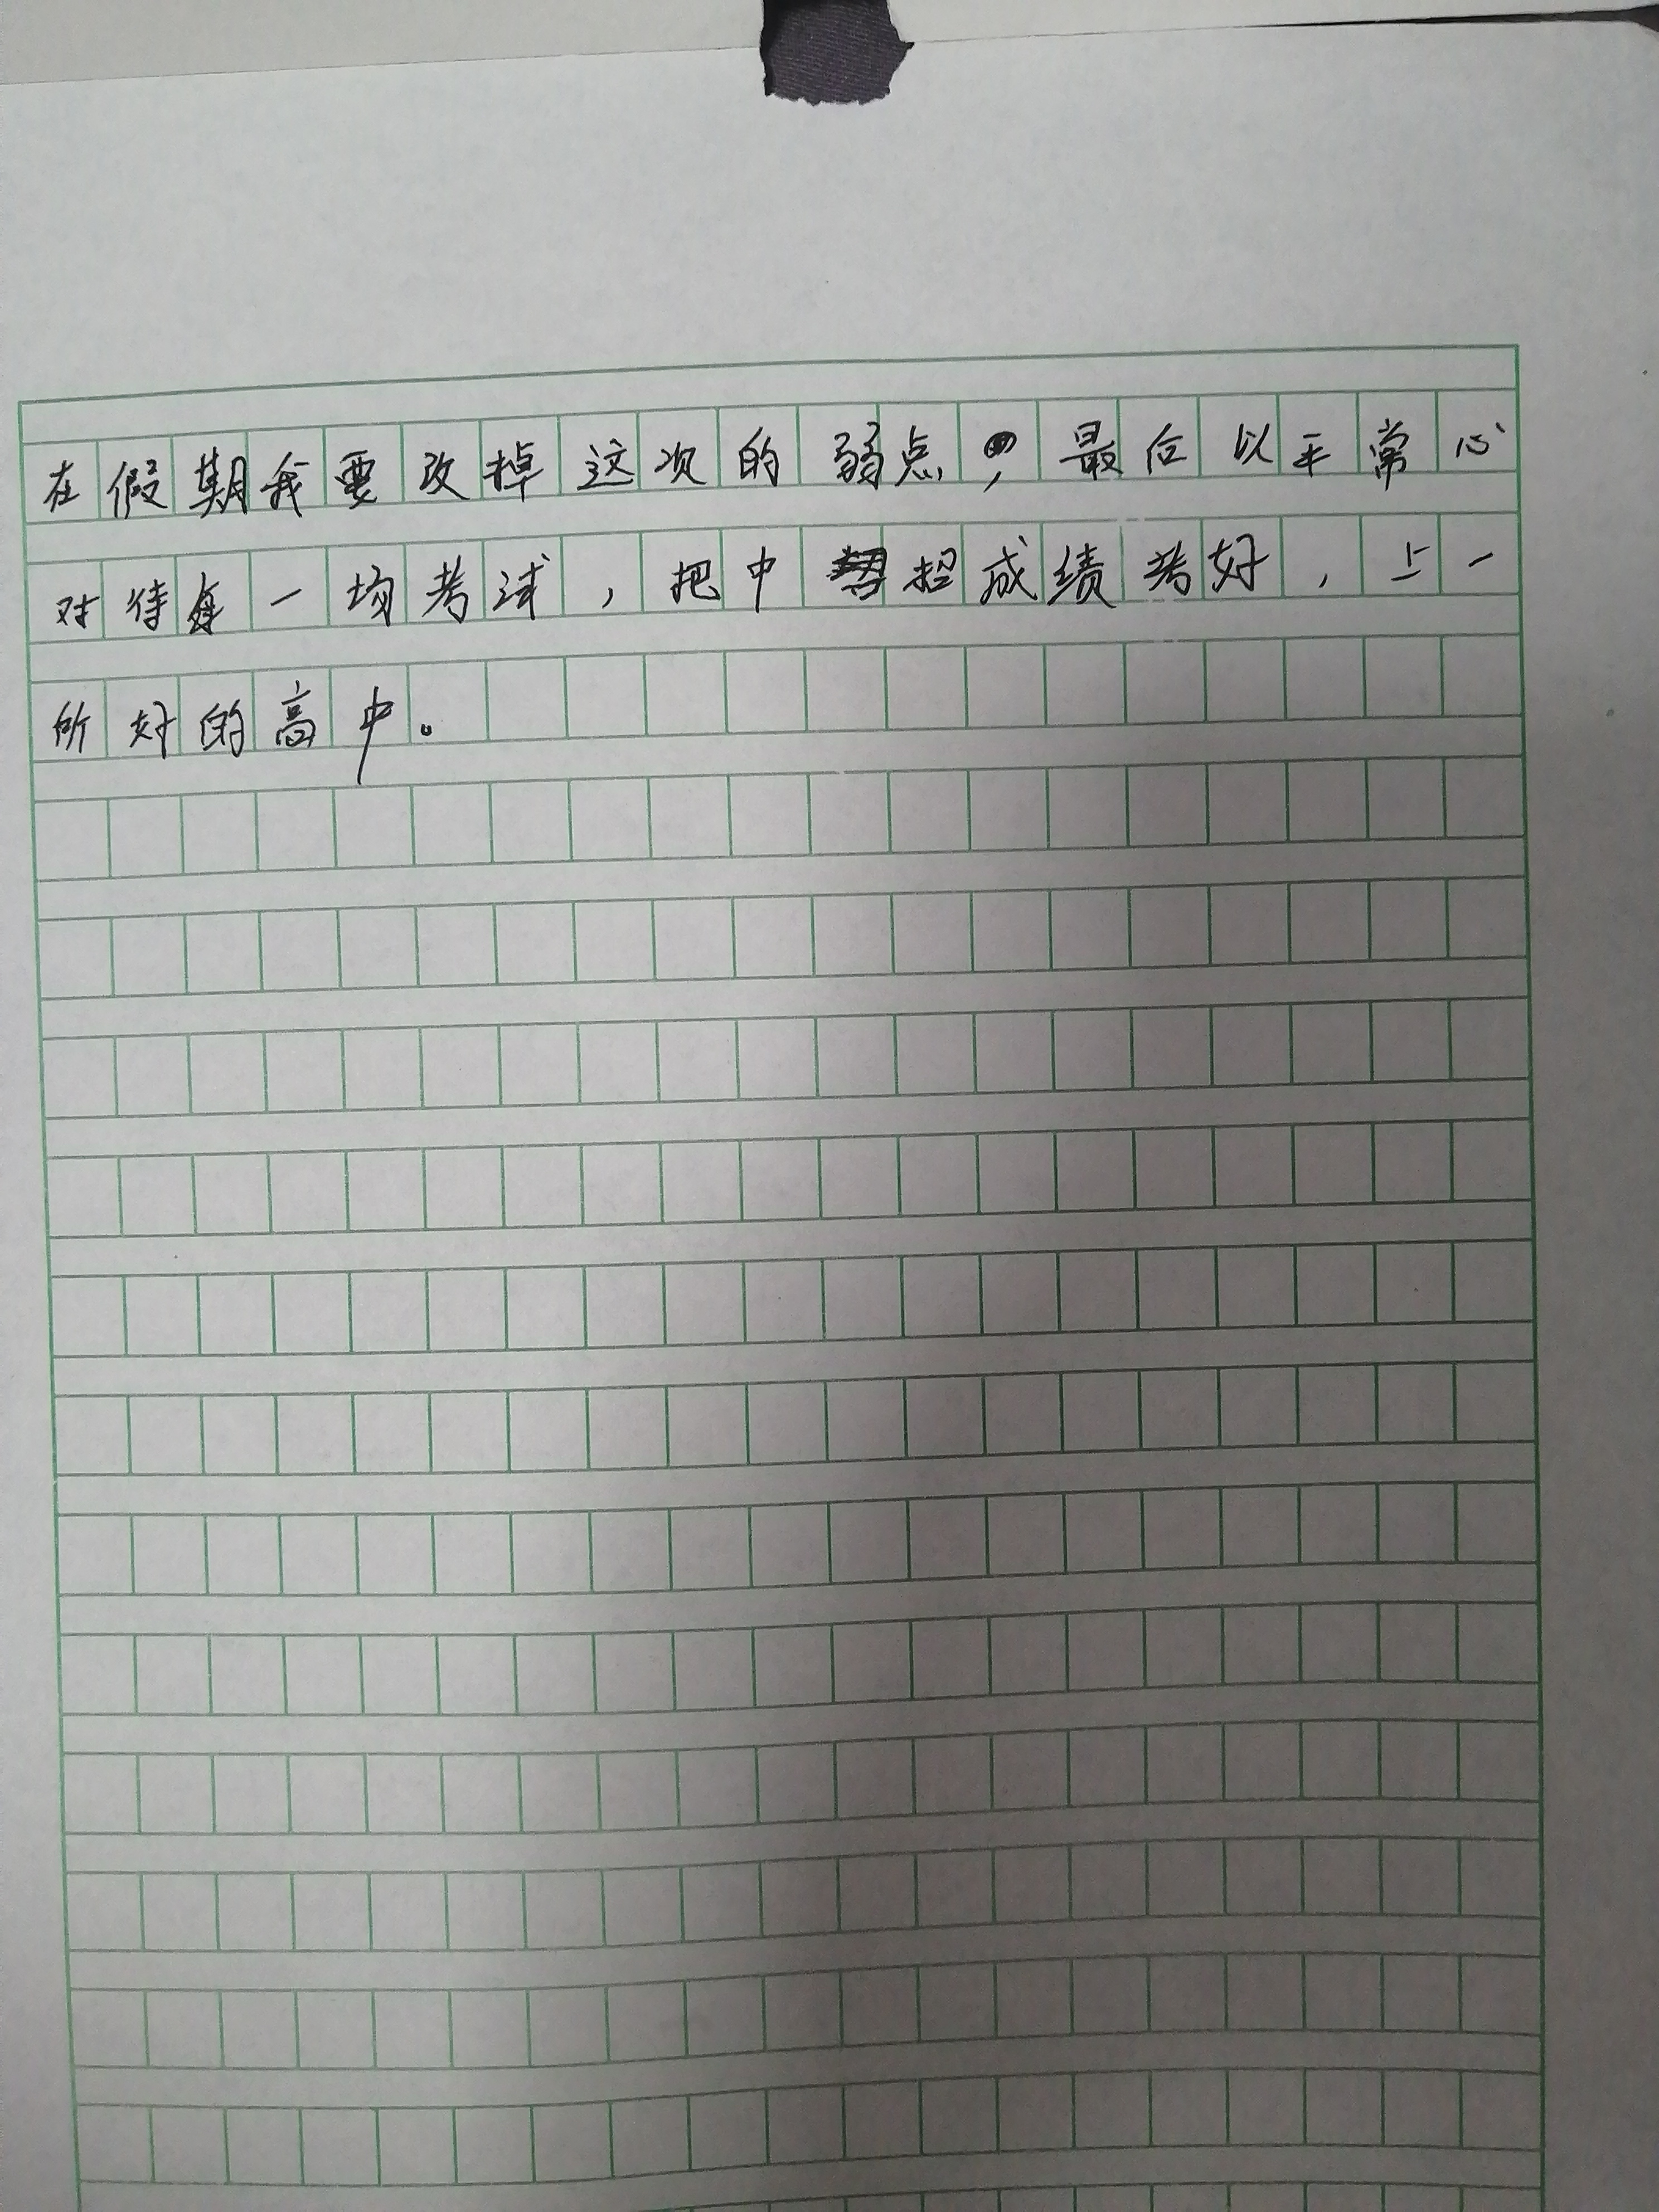 在假期我要改掉这次的弱点，最后以平常心
对待每一场考试，把中招成绩考好，上一
所好的高中。